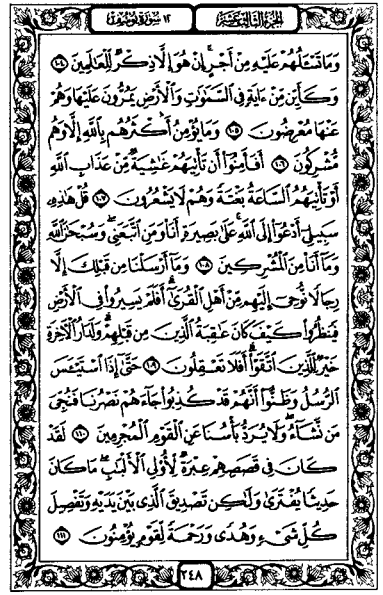 الجزء الثالث عشر ١٢ سورة يوسف
وَمَا تَسْـَٔلُهُمْ عَلَيْهِ مِنْ أَجْرٍ ۚ إِنْ هُوَ إِلَّا ذِكْرٌ لِّلْعَـٰلَمِينَ ١٠٤
وَكَأَيِّن مِّنْ ءَايَةٍ فِى ٱلسَّمَـٰوَٰتِ وَٱلْأَرْضِ يَمُرُّونَ عَلَيْهَا وَهُمْ
عَنْهَا مُعْرِضُونَ ١٠٥ وَمَا يُؤْمِنُ أَكْثَرُهُم بِٱللَّهِ إِلَّا وَهُم
مُّشْرِكُونَ ١٠٦ أَفَأَمِنُوٓا۟ أَن تَأْتِيَهُمْ غَـٰشِيَةٌ مِّنْ عَذَابِ ٱللَّهِ
أَوْ تَأْتِيَهُمُ ٱلسَّاعَةُ بَغْتَةً وَهُمْ لَا يَشْعُرُونَ ١٠٧ قُلْ هَـٰذِهِۦ
سَبِيلِىٓ أَدْعُوٓا۟ إِلَى ٱللَّهِ ۚ عَلَىٰ بَصِيرَةٍ أَنَا۠ وَمَنِ ٱتَّبَعَنِى ۖ وَسُبْحَـٰنَ ٱللَّهِ
وَمَآ أَنَا۠ مِنَ ٱلْمُشْرِكِينَ ١٠٨ وَمَآ أَرْسَلْنَا مِن قَبْلِكَ إِلَّا
رِجَالًا نُّوحِىٓ إِلَيْهِم مِّنْ أَهْلِ ٱلْقُرَىٰٓ ۗ أَفَلَمْ يَسِيرُوا۟ فِى ٱلْأَرْضِ
فَيَنظُرُوا۟ كَيْفَ كَانَ عَـٰقِبَةُ ٱلَّذِينَ مِن قَبْلِهِمْ ۗ وَلَدَارُ ٱلْـَٔاخِرَةِ
خَيْرٌ لِّلَّذِينَ ٱتَّقَوْا۟ ۗ أَفَلَا تَعْقِلُونَ ١٠٩ حَتَّىٰٓ إِذَا ٱسْتَيْـَٔسَ
ٱلرُّسُلُ وَظَنُّوٓا۟ أَنَّهُمْ قَدْ كُذِبُوا۟ جَآءَهُمْ نَصْرُنَا فَنُجِّىَ
مَن نَّشَآءُ ۖ وَلَا يُرَدُّ بَأْسُنَا عَنِ ٱلْقَوْمِ ٱلْمُجْرِمِينَ ١١٠ لَقَدْ
كَانَ فِى قَصَصِهِمْ عِبْرَةٌ لِّأُو۟لِى ٱلْأَلْبَـٰبِ ۗ مَا كَانَ
حَدِيثًا يُفْتَرَىٰ وَلَـٰكِن تَصْدِيقَ ٱلَّذِى بَيْنَ يَدَيْهِ وَتَفْصِيلَ
كُلِّ شَىْءٍ وَهُدًى وَرَحْمَةً لِّقَوْمٍ يُؤْمِنُونَ ١١١
٢٤٨